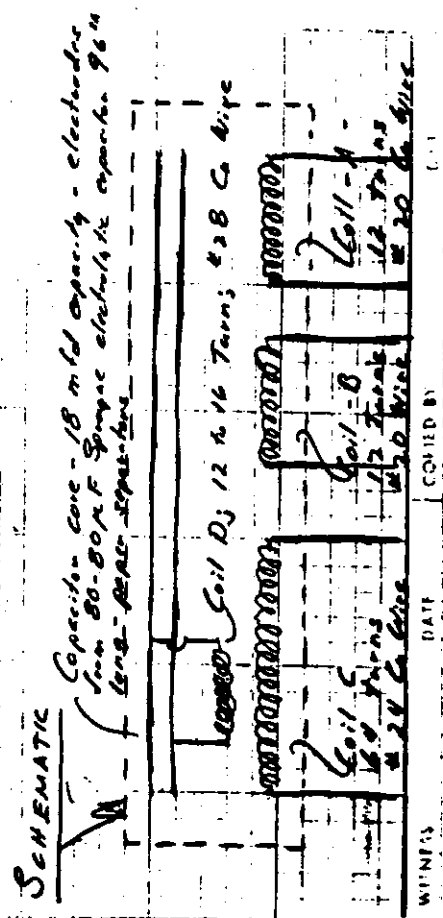 SCHEMATIC
Capacitor core - 18 mfd capacity - electrodes
from 80-80 MF Sprague electrolytic capacitor 96"
long - paper separators
Coil D; 12 to 16 Turns #28 Cu Wire
Coil C
64 Turns
#24 Cu Wire
Coil - B
12 Turns
#20 Wire
Coil - A -
12 Turns
#20 Cu Wire
WITNESS DATE COPIED BY